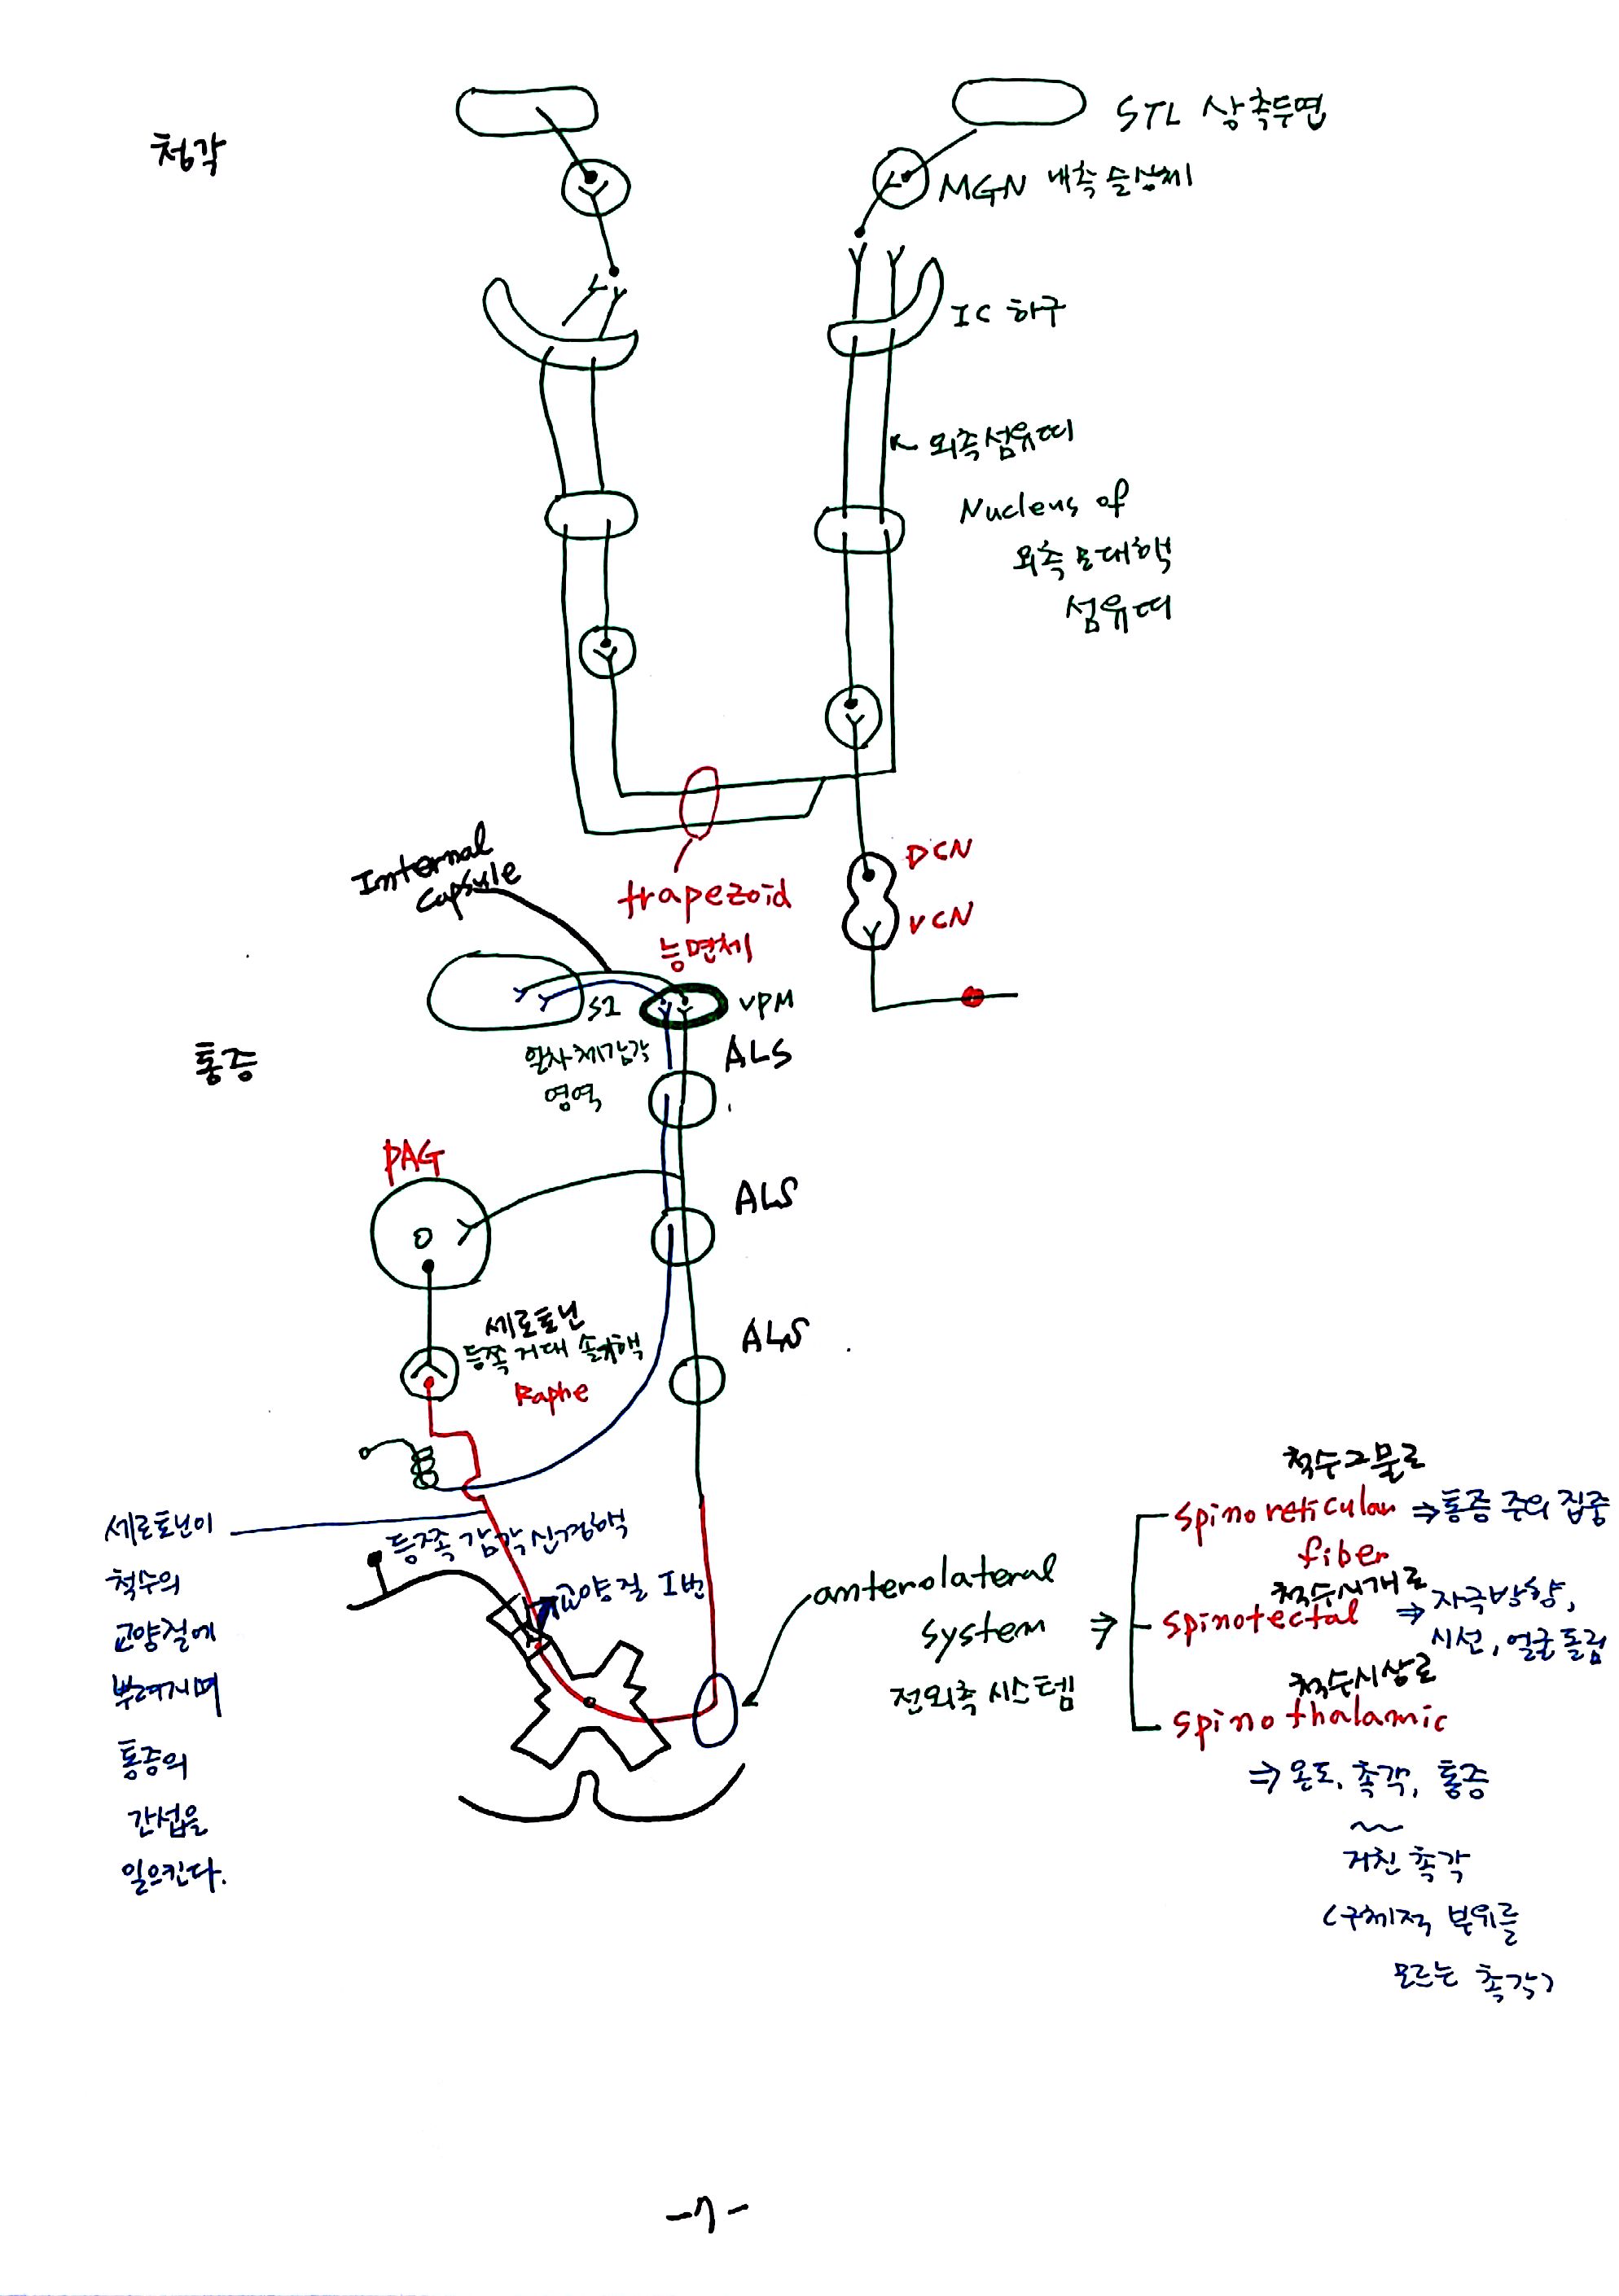 청각
STL 상측두면
MGN 내측 슬상체
IC 하구
외측섬유띠
Nucleus of
외측 모대핵
섬유띠
DCN
VCN
trapezoid
능면체
Internal
capsule
S1
VPM
일차체감각
영역
통증
ALS
PAG
ALS
세로토닌
등쪽 거대 솔기핵
Raphe
ALS
세로토닌이
척수의
교양질에
뿌려지며
통증의
간섭을
일으킨다.
등쪽 감각신경핵
교양질 I번
anterolateral
system
전외측 시스템
척수그물로
spinoreticular ⇒ 통증 주의 집중
fiber
척수시개로
spinotectal ⇒ 자극방향,
시선, 얼굴 돌림
척수시상로
spinothalamic
⇒ 온도, 촉각, 통증
거친 촉각
(구체적 부위를
모르는 촉각)
-7-